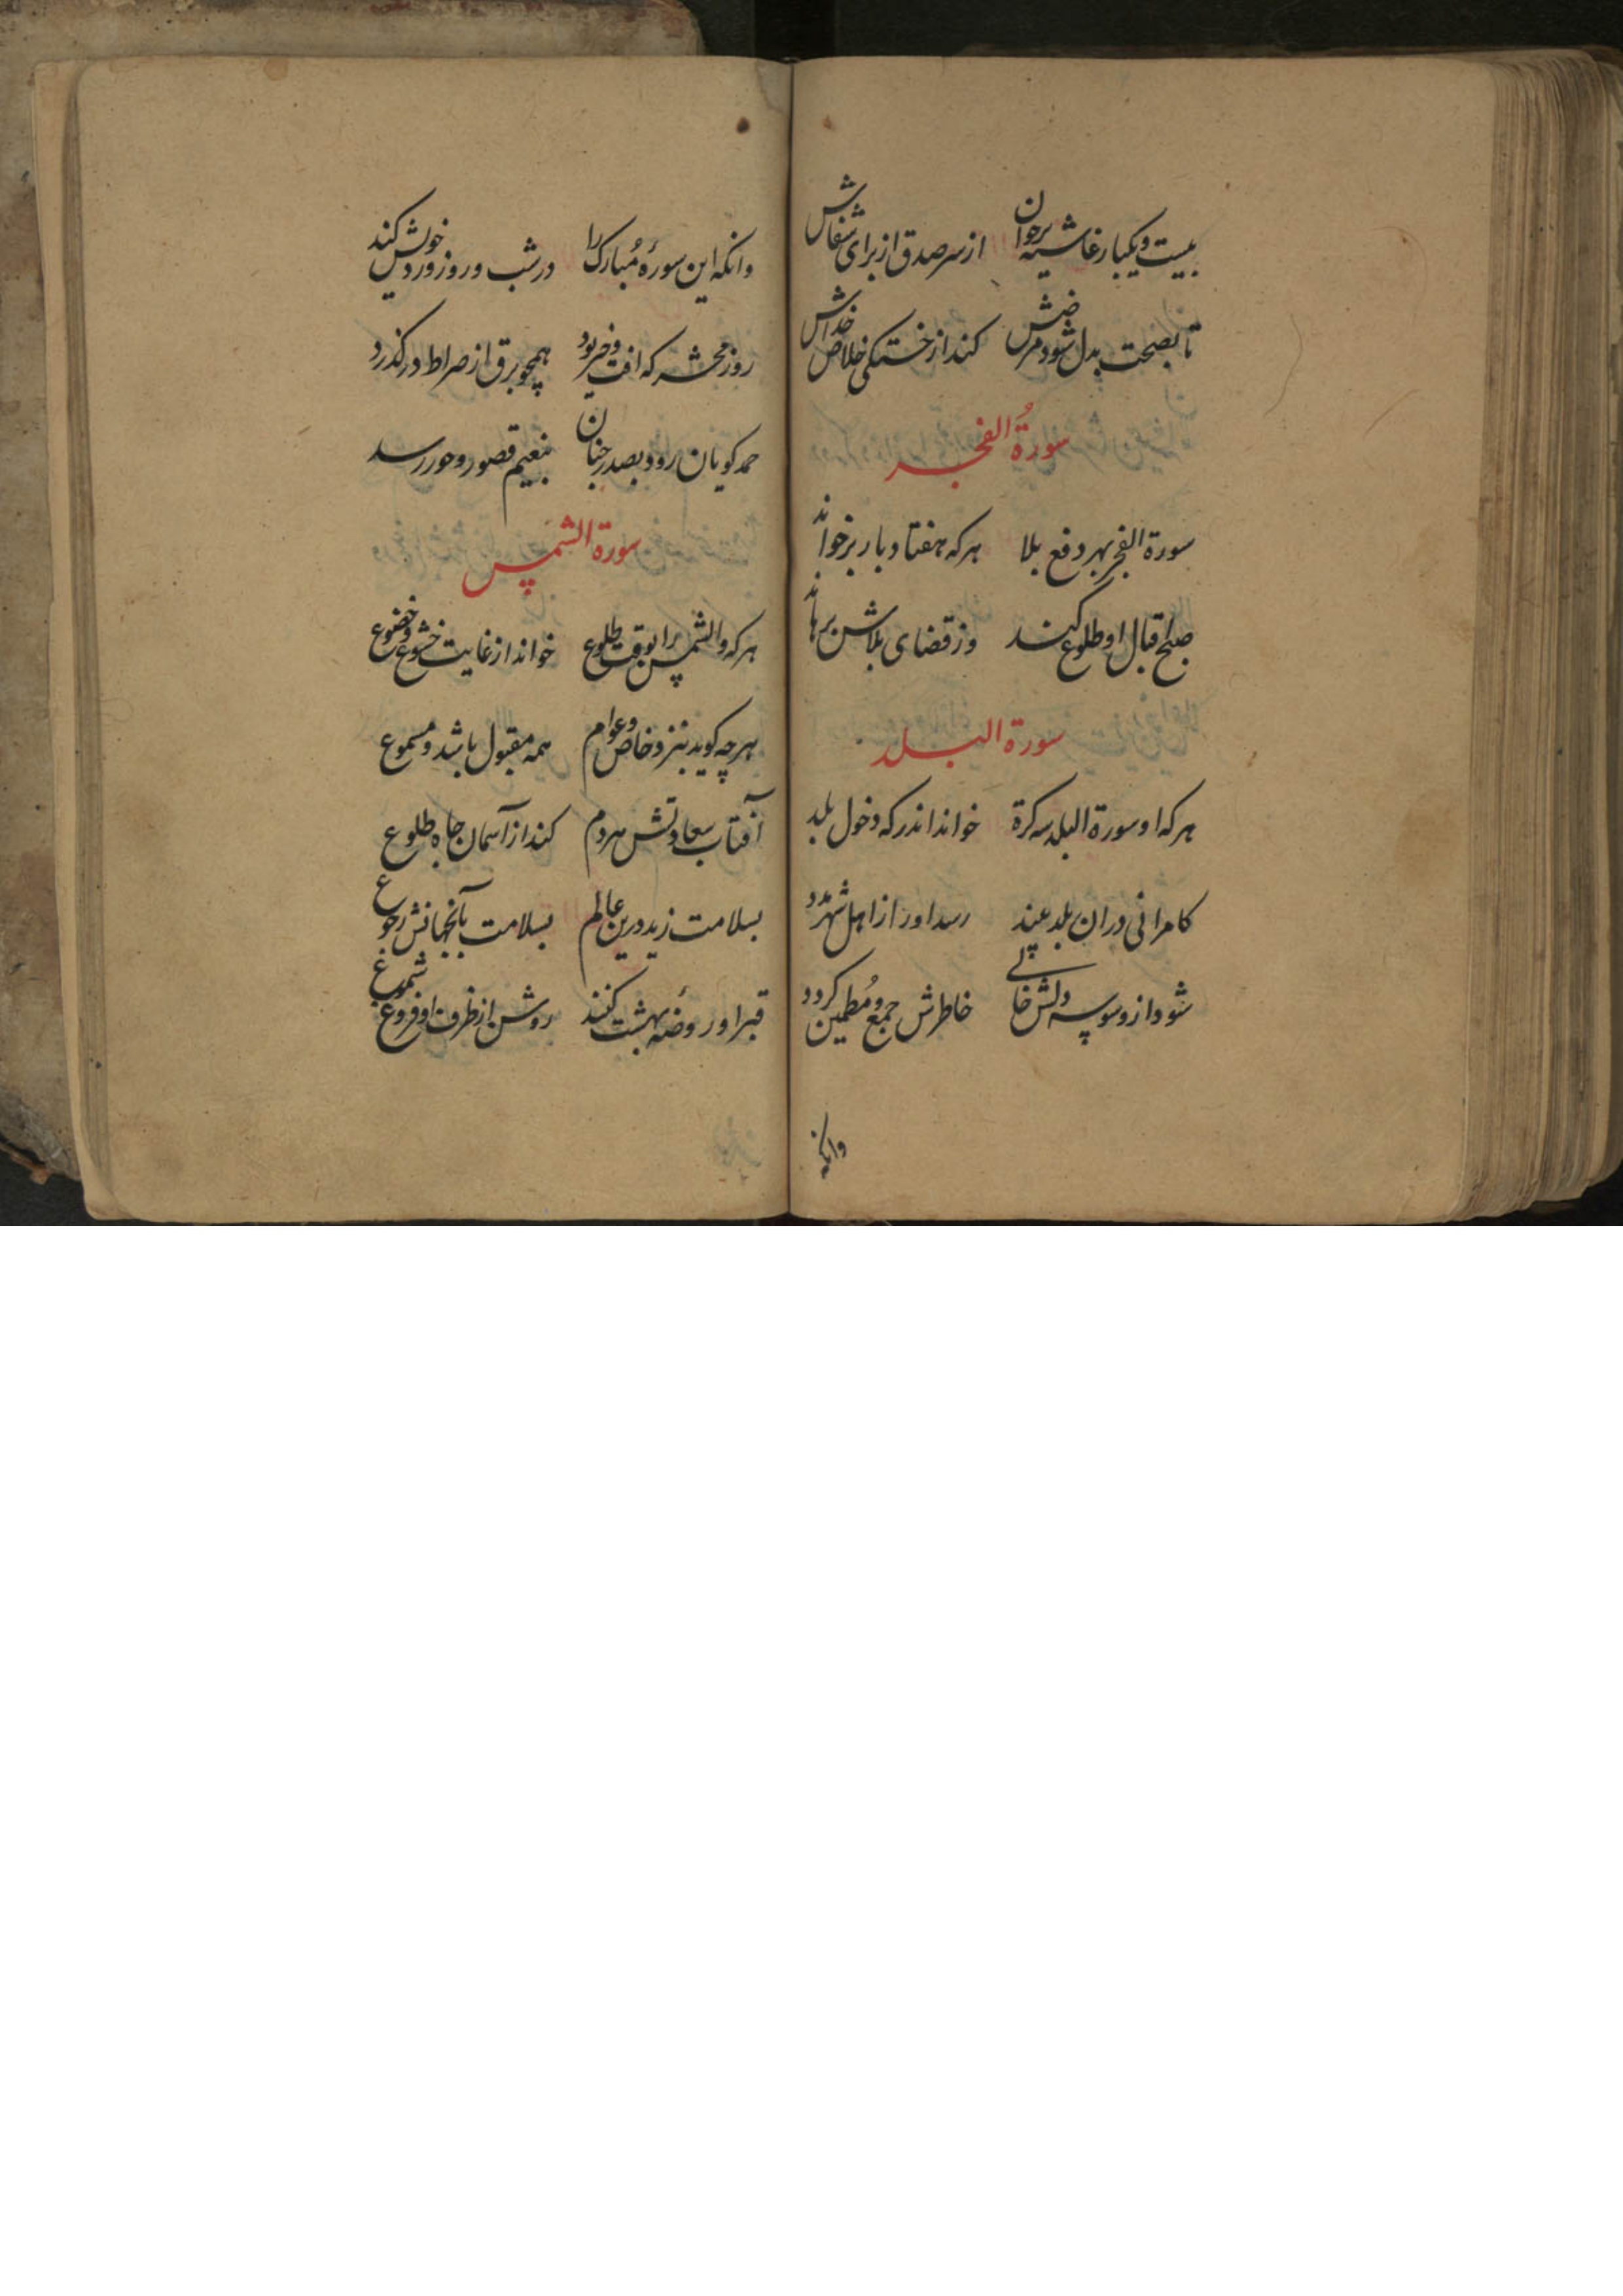 بیست و یکبار غاشیه برخوان از سر صدق از برای شفاش
تا بصحت بدل شود مرضش کند از خستکی خلاص خداش
سورة الفجر
سورة الفجر بهر دفع بلا هر که هفتاد بار برخواند
صبح اقبال او طلوع کند وز قضای بلاش برهاند
سورة البلد
هر که او سورة البلد سه کرة خواند اندر که دخول بلد
کامرانی دران بلد عیند رسد او را از اهل شهر مدد
شود از وسوسه دلش خالی خاطرش جمع و مطمین کردد
وانکه
وانکه این سورۀ مبارک را در شب و روز ورد خویش کند
روز محشر که افت و خیز بود همچو برق از صراط در کذرد
حمد کویان رود بصدر جنان بنعیم قصور و حور رسد
سورة الشمس
هر که والشمس را بوقت طلوع خواند از غایت خشوع و خضوع
هر چه کوید بنزد خاص و عوام همه مقبول باشد و مسموع
آفتاب سعادتش هر دم کند از آسمان جاه طلوع
بسلامت زید درین عالم بسلامت بآنجهانش رجوع
قبر او روضۀ بهشت کنند روشن از طرف او فروغ شموع